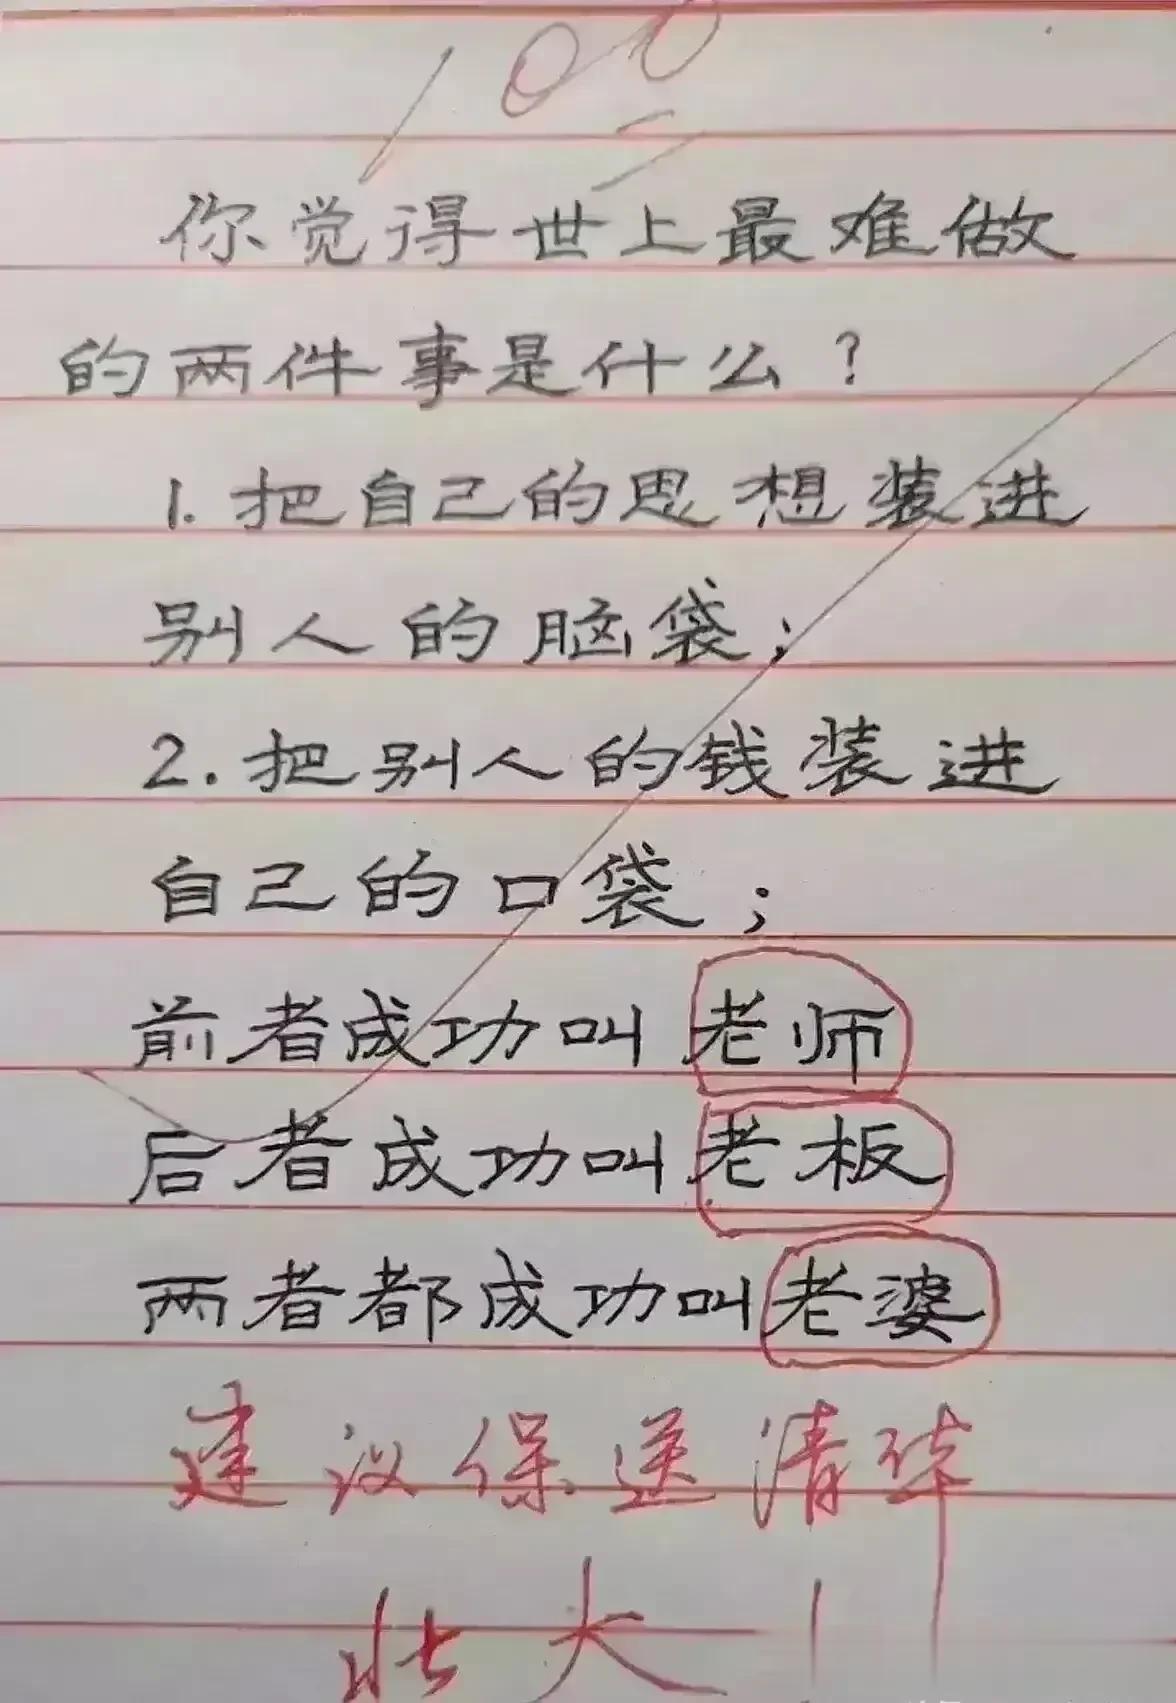 100
你觉得世上最难做
的两件事是什么?
1.把自己的思想装进
别人的脑袋;
2.把别人的钱装进
自己的口袋;
前者成功叫老师
后者成功叫老板
两者都成功叫老婆
建议保送清华
北大!